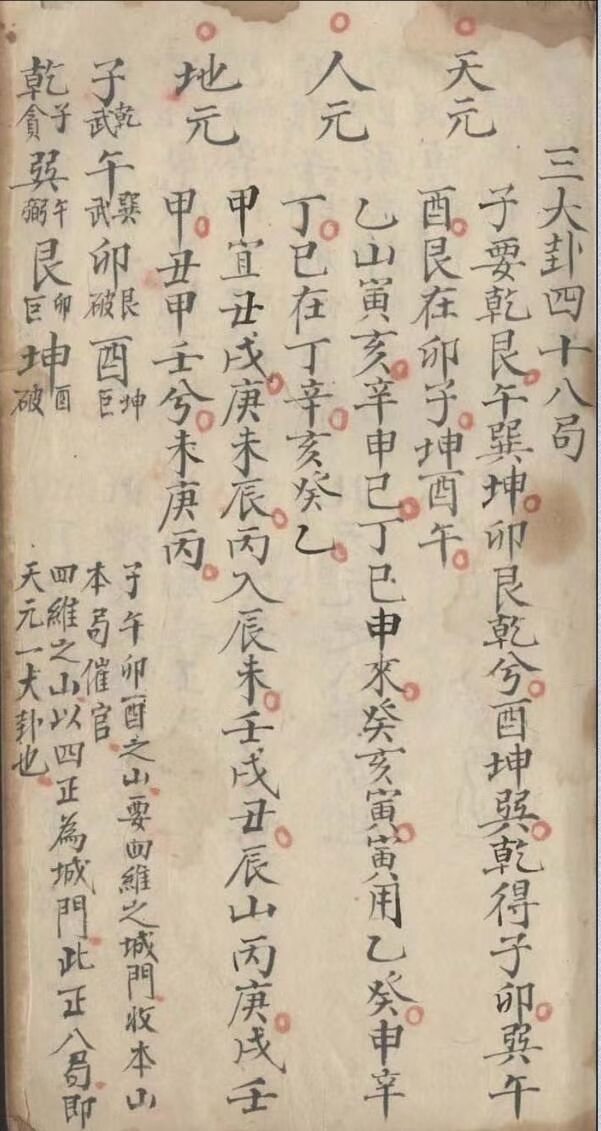 三大卦四十八局
天元
子要乾艮午巽坤卯艮乾兮酉坤巽乾得子卯巽午
酉艮在卯子坤酉午
人元
乙山寅亥辛申巳丁巳申來癸亥寅寅用乙癸申辛
丁巳在丁辛亥癸乙
地元
甲宜丑戌庚未辰丙入辰未壬戌丑辰山丙庚戌壬
甲丑甲壬兮未庚丙
子乾武午巽武卯艮破酉坤巨
乾子貪巽午弼艮卯巨坤酉破
子午卯酉之山要四維之城門收本山
本局催官
四維之山以四正為城門此正八局即
天元一大卦也